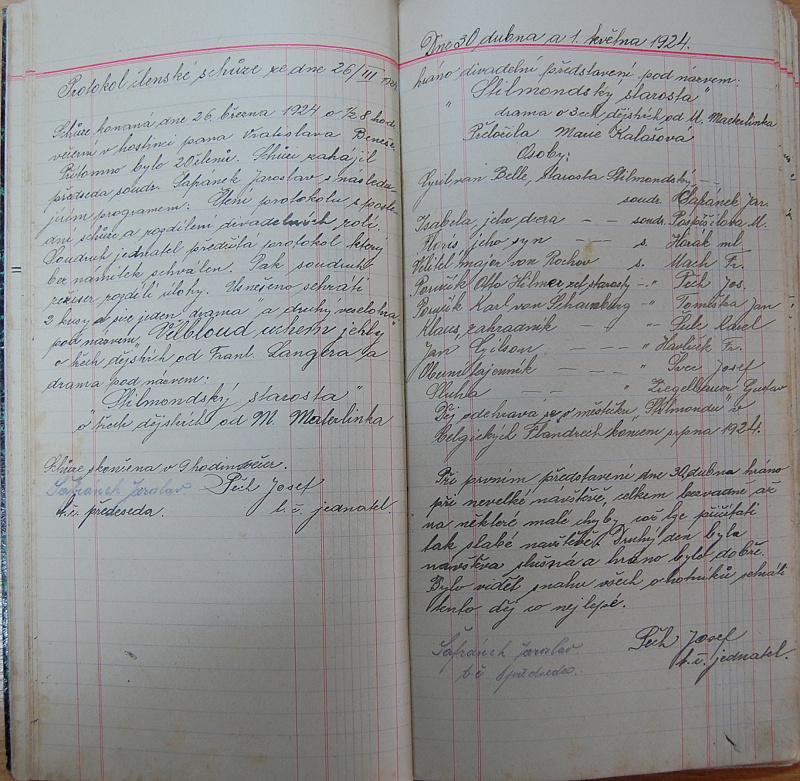 Protokol členské schůze ze dne 26/III 1924
Schůze konaná dne 26. března 1924 o ½ 8 hod
večerní v hostinci pana Vratislava Beneše.
Přítomno bylo 20 členů. Schůzi zahájil
předseda soudr. Šafránek Jaroslav s násle-
jícím programem: Čtení protokolu s posle-
dné schůze, a rozdělení divadelních rolí.
Soudruh jednatel předčítá protokol který
bez námitek schválen. Pak soudruh
režiser rozdělil úlohy. Usneseno sehráti
2 kusy a sice jeden "drama" a druhý veselohra
pod názvem, "Velbloud uchem jehly"
o třech dějstvích od Frant. Langera a
drama pod názvem:
"Stilmondský starosta"
o třech dějstvích od M. Materlinka
Schůze skončena v 9 hodin večer.
Šafránek Jaroslav Pěch Josef
t.č. předseda. t. č. jednatel.
Dne 30 dubna a 1. května 1924.
hráno divadelní představení pod názvem:
"Stilmondský starosta"
drama o 3 ech dějstvích od M. Maeterlinka
Přeložila Marie Kalašová
Osoby:
Cyril van Belle, Starosta Stilmondský —
soudr. Šafránek Jar.
Isabela, jeho dcera — — soudr. Pospíšilova M.
Floris jeho syn — — s. Horák ml.
Velitel major von Rochov s. Mach Fr.
Poručík Otto Hilmer zeť starosty — " Pěch Jos.
Poručík Karl von Schaunberg — " Tomáška Jan
Klaus, zahradník — " Šulc Karel
Jan Gilson — — — " Havlíček Fr.
Obecní tajemník — — — " Švec Josef
Sluha — — " Ziegelbauer Gustav
Děj odehrává se v městečku "Stilmondu" v
Belgických Flandrech koncem srpna 1924.
Při prvním představení dne 30. dubna hráno
při nevelké návštěvě, celkem bezvadně až
na některé malé chyby, což lze přičítati
tak slabé návštěvě. Druhý den byla
návštěva slušná a hráno bylo dobře.
Bylo viděti snahu všech ochotníků sehráti
tento děj co nejlépe.
Šafránek Jaroslav Pěch Josef
t.č. předseda. t. č. jednatel.